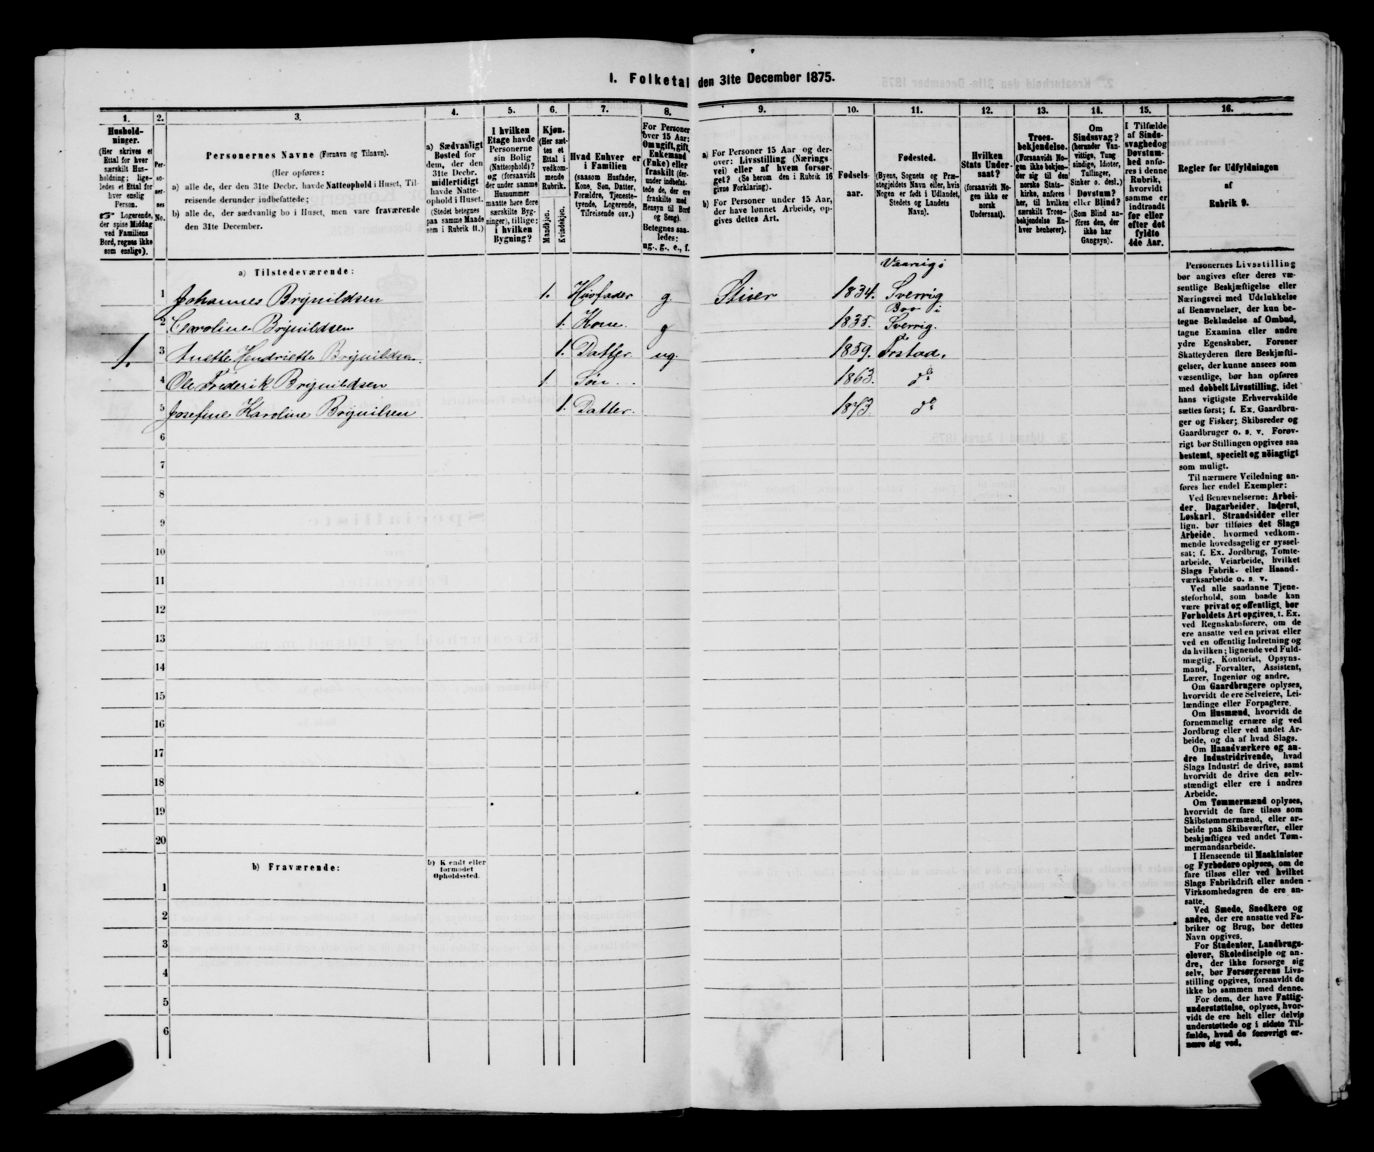 1. Folketal den 31te December 1875.
1.
Hushold-
ninger.
(Her skrives et
Ettal for hver
særskilt Hus-
holdning; lige-
ledes et Ettal for
hver enslig
Person.
☞ Logerende,
der spise Middag
ved Familiens
Bord, regnes ikke
som enslige).
2.
Per-
soner-
nes
No.
3.
Personernes Navne (Fornavn og Tilnavn).
(Her opføres:
a) alle de, der den 31te Decbr. havde Natteophold i Huset, Til-
reisende derunder indbefattede;
b) alle de, der sædvanlig bo i Huset, men vare fraværende
den 31te December.
4.
a) Sædvanligt
Bosted for
dem, der den
31te Decbr.
midlertidigt
havde Natte-
ophold i Huset.
(Stedet betegnes
paa samme Maade
som i Rubrik 11.)
5.
I hvilken
Etage havde
Personerne
sin Bolig
(Natteophold)?
og (forsaavidt
der under samme
Husnummer
maatte høre flere
særskilte Byg-
ninger), tillige:
i hvilken
Bygning?
6.
Kjøn.
(Her sæt-
tes et
Ettal i
vedkom-
mende
Rubrik.
Mandkjøn.
Kvindekjøn.
7.
Hvad Enhver er
i Familien
(saasom Husfader,
Kone, Søn, Datter,
Forældre, Tjeneste-
tyende, Logerende,
Tilreisende osv.)
8.
For Personer
over 15 Aar:
Om ugift, gift,
Enkemand
(Enke) eller
fraskilt (der-
under indbefat-
tede de, der ere
fraskilte med
Hensyn til Bord
og Seng).
Betegnes saa-
ledes:
ug., g., e., f.
9.
a) For Personer 15 Aar og der-
over: Livsstilling (Nærings-
vei) eller af hvem forsør-
get? (Se herom den i Rubrik 16
givne Forklaring).
b) For Personer under 15 Aar,
der have lønnet Arbeide, op-
gives dettes Art.
10.
Fødsels-
aar.
11.
Fødested.
(Byens, Sognets og Præ-
stegjeldets Navn eller, hvis
Nogen er født i Udlandet,
Stedets og Landets
Navn).
12.
Hvilken
Stats Under-
saat?
(forsaavidt No-
gen ikke er
norsk
Undersaat).
13.
Troes-
bekjendelse.
(Forsaavidt No-
gen ikke bekjen-
der sig til den
norske Stats-
kirke, anføres
her, til hvilken
særskilt Troes-
bekjendelse En-
hver henhører).
14.
Om
Sindssvag?
(herunder Van-
vittige, Tung-
sindige, Idioter,
Tullinger,
Sinker o. desl.)
Døvstum?
eller Blind?
(Som Blind an-
føres den, der
ikke har
Gangsyn).
15.
I Tilfælde
af Sinds-
svaghed og
Døvstum-
hed anfø-
res i denne
Rubrik,
hvorvidt
samme er
indtraadt
før eller
efter det
fyldte
4de Aar.
16.
Regler for Udfyldningen
af
Rubrik 9.
a) Tilstedeværende:
1 Johannes Brynildsen 1. Husfader g. 1834. Sverrig
2 Caroline Brynildsen 1. Kone. g 1835. Sverrig.
1. 3 Anette Hendriette Brynildsen 1. Datter ug. 1859.
4 Ole Frederik Brynildsen 1 Søn 1863. do
5 Josefine Karoline Brynilsen 1. Datter. 1873. do
6
7
8
9
10
11
12
13
14
15
16
17
18
19
20
b) Fraværende:
b) Kjendt eller
formodet
Opholdssted.
1
2
3
4
5
6
Personernes Livsstilling
bør angives efter deres væ-
sentlige Beskjæftigelse eller
Næringsvei med Udelukkelse
af Benævnelser, der kun be-
tegne Beklædelse af Ombud,
tagne Examina eller andre
ydre Egenskaber. Forener
Skatteyderen flere Beskjæfti-
gelser, der kunne ansees som
væsentlige, bør han opføres
med dobbelt Livsstilling, idet
hans vigtigste Erhvervskilde
sættes først; f. Ex. Gaardbru-
ger og Fisker; Skibsreder og
Gaardbruger o. s. v. Forøv-
rigt bør Stillingen opgives saa
bestemt, specielt og nöiagtigt
som muligt.
Til nærmere Veiledning an-
føres her endel Exempler:
Ved Benævnelserne: Arbei-
der, Dagarbeider, Inderst,
Løskarl, Strandsidder eller
lign. bør tilføies det Slags
Arbeide, hvormed vedkom-
mende hovedsagelig er syssel-
sat; f. Ex. Jordbrug, Tomte-
arbeide, Veiarbeide, hvilket
Slags Fabrik- eller Haand-
værksarbeide o. s. v.
Ved alle saadanne Tjene-
steforhold, som baade kan
være privat og offentligt, bør
Forholdets Art opgives, t. Ex.
ved Regnskabsførere, om de
ere ansatte ved en privat eller
ved en offentlig Indretning og
da hvilken; lignende ved Fuld-
mægtig, Kontorist, Opsyns-
mand, Forvalter, Assistent,
Lærer, Ingeniør og andre.
Om Gaardbrugere oplyses,
hvorvidt de ere Selveiere, Lei-
lændinge eller Forpagtere.
Om Husmænd, hvorvidt de
fornemmelig ernære sig ved
Jordbrug eller ved andet Ar-
beide, og da af hvad Slags.
Om Haandværkere og an-
dre Industridrivende, hvad
Slags Industri de drive, samt
hvorvidt de drive den selv-
stændigt eller ere i andres
Arbeide.
Om Tømmermænd oplyses,
hvorvidt de fare tilsøs som
Skibstømmermænd, eller ar-
beide paa Skibsværfter, eller
beskjæftiges ved andet Tøm-
mermandsarbeide.
I Henseende til Maskinister
og Fyrbødere oplyses, om de
fare tilsøs eller ved hvilket
Slags Fabrikdrift eller anden
Virksomhedsgren de ere an-
satte.
Ved Smede, Snedkere og
andre, der ere ansatte ved Fa-
briker og Brug, bør dettes
Navn opgives.
For Studenter, Landbrugs-
elever, Skoledisciple og an-
dre, der ikke forsørge sig
selv, bør Forsørgerens Livs-
stilling opgives, forsaavidt de
ikke bo sammen med denne.
For dem, der have Fattig-
understøttelse, oplyses, hvor-
vidt de ere helt eller delvis
understøttede og i sidste Til-
fælde, hvad de forøvrigt er-
nære sig ved.